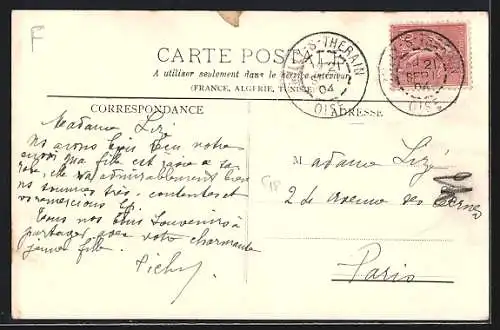 F
CARTE POSTALE
A utiliser seulement dans le service intérieur
(FRANCE, ALGERIE, TUNISIE)
CORRESPONDANCE
ADRESSE
S-THERAIN
21
SEPT
04
OISE
Madame Lizé
Nous avons bien reçu votre
envoi ma fille est ravie de sa
robe, elle va admirablement bien
nous sommes très contentes et
vs remercions
Tous nos bons souvenirs à
partager avec votre charmante
jeune fille.
Pichy
Madame Lizé
2 avenue des Ternes
Paris